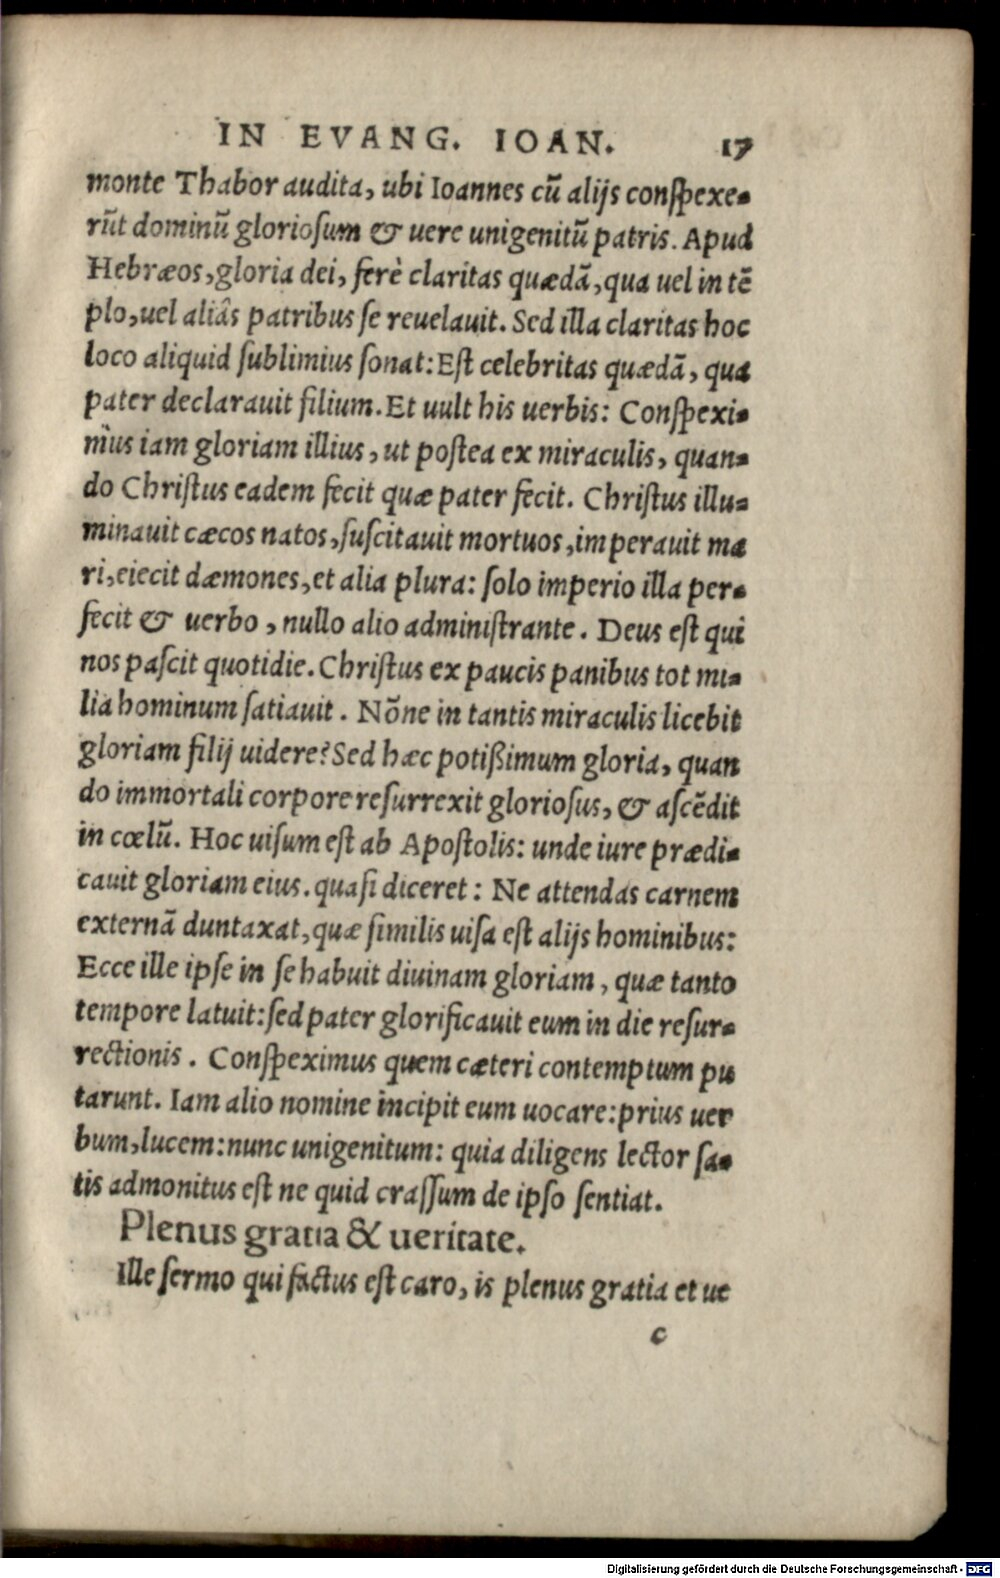 IN EVANG. IOAN. 17
monte Thabor audita, ubi Ioannes cū alijs conſpexe-
rūt dominū glorioſum & uere unigenitū patris. Apud
Hebræos, gloria dei, ferè claritas quædā, qua uel in tē
plo, uel aliâs patribus ſe reuelauit. Sed illa claritas hoc
loco aliquid ſublimius ſonat: Eſt celebritas quædā, qua
pater declarauit filium. Et uult his uerbis: Conſpexi-
mus iam gloriam illius, ut poſtea ex miraculis, quan-
do Chriſtus eadem fecit quæ pater fecit. Chriſtus illu-
minauit cæcos natos, ſuſcitauit mortuos, imperauit ma
ri, eiecit dæmones, et alia plura: ſolo imperio illa per-
fecit & uerbo, nullo alio adminiſtrante. Deus eſt qui
nos paſcit quotidie. Chriſtus ex paucis panibus tot mi-
lia hominum ſatiauit. Nōne in tantis miraculis licebit
gloriam filij uidere? Sed hæc potißimum gloria, quan
do immortali corpore reſurrexit glorioſus, & aſcēdit
in cœlū. Hoc uiſum eſt ab Apoſtolis: unde iure prædi-
cauit gloriam eius. quaſi diceret: Ne attendas carnem
externā duntaxat, quæ ſimilis uiſa eſt alijs hominibus:
Ecce ille ipſe in ſe habuit diuinam gloriam, quæ tanto
tempore latuit: ſed pater glorificauit eum in die reſur-
rectionis. Conſpeximus quem cæteri contemptum pu
tarunt. Iam alio nomine incipit eum uocare: prius uer
bum, lucem: nunc unigenitum: quia diligens lector ſa-
tis admonitus eſt ne quid craſſum de ipſo ſentiat.
Plenus gratia & ueritate.
Ille ſermo qui factus eſt caro, is plenus gratia et ue
c
Digitalisierung gefördert durch die Deutsche Forschungsgemeinschaft - DFG